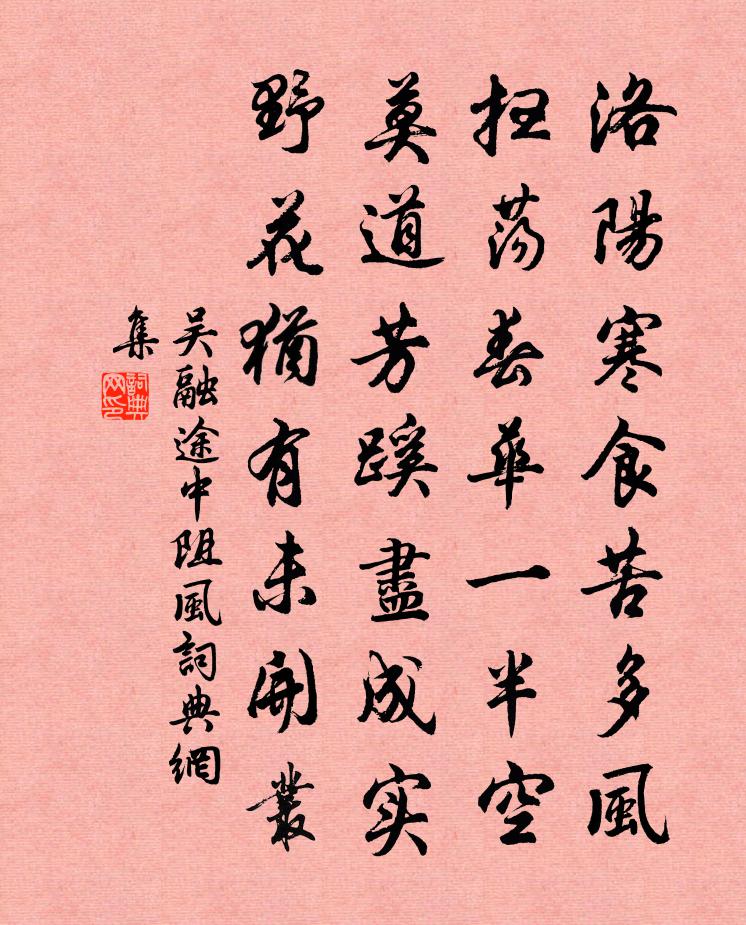 洛陽寒食苦多風
扫荡春華一半空
莫道芳蹊盡成实
野花猶有未開叢
吴融途中阻風詞典網
集
詞典
网印